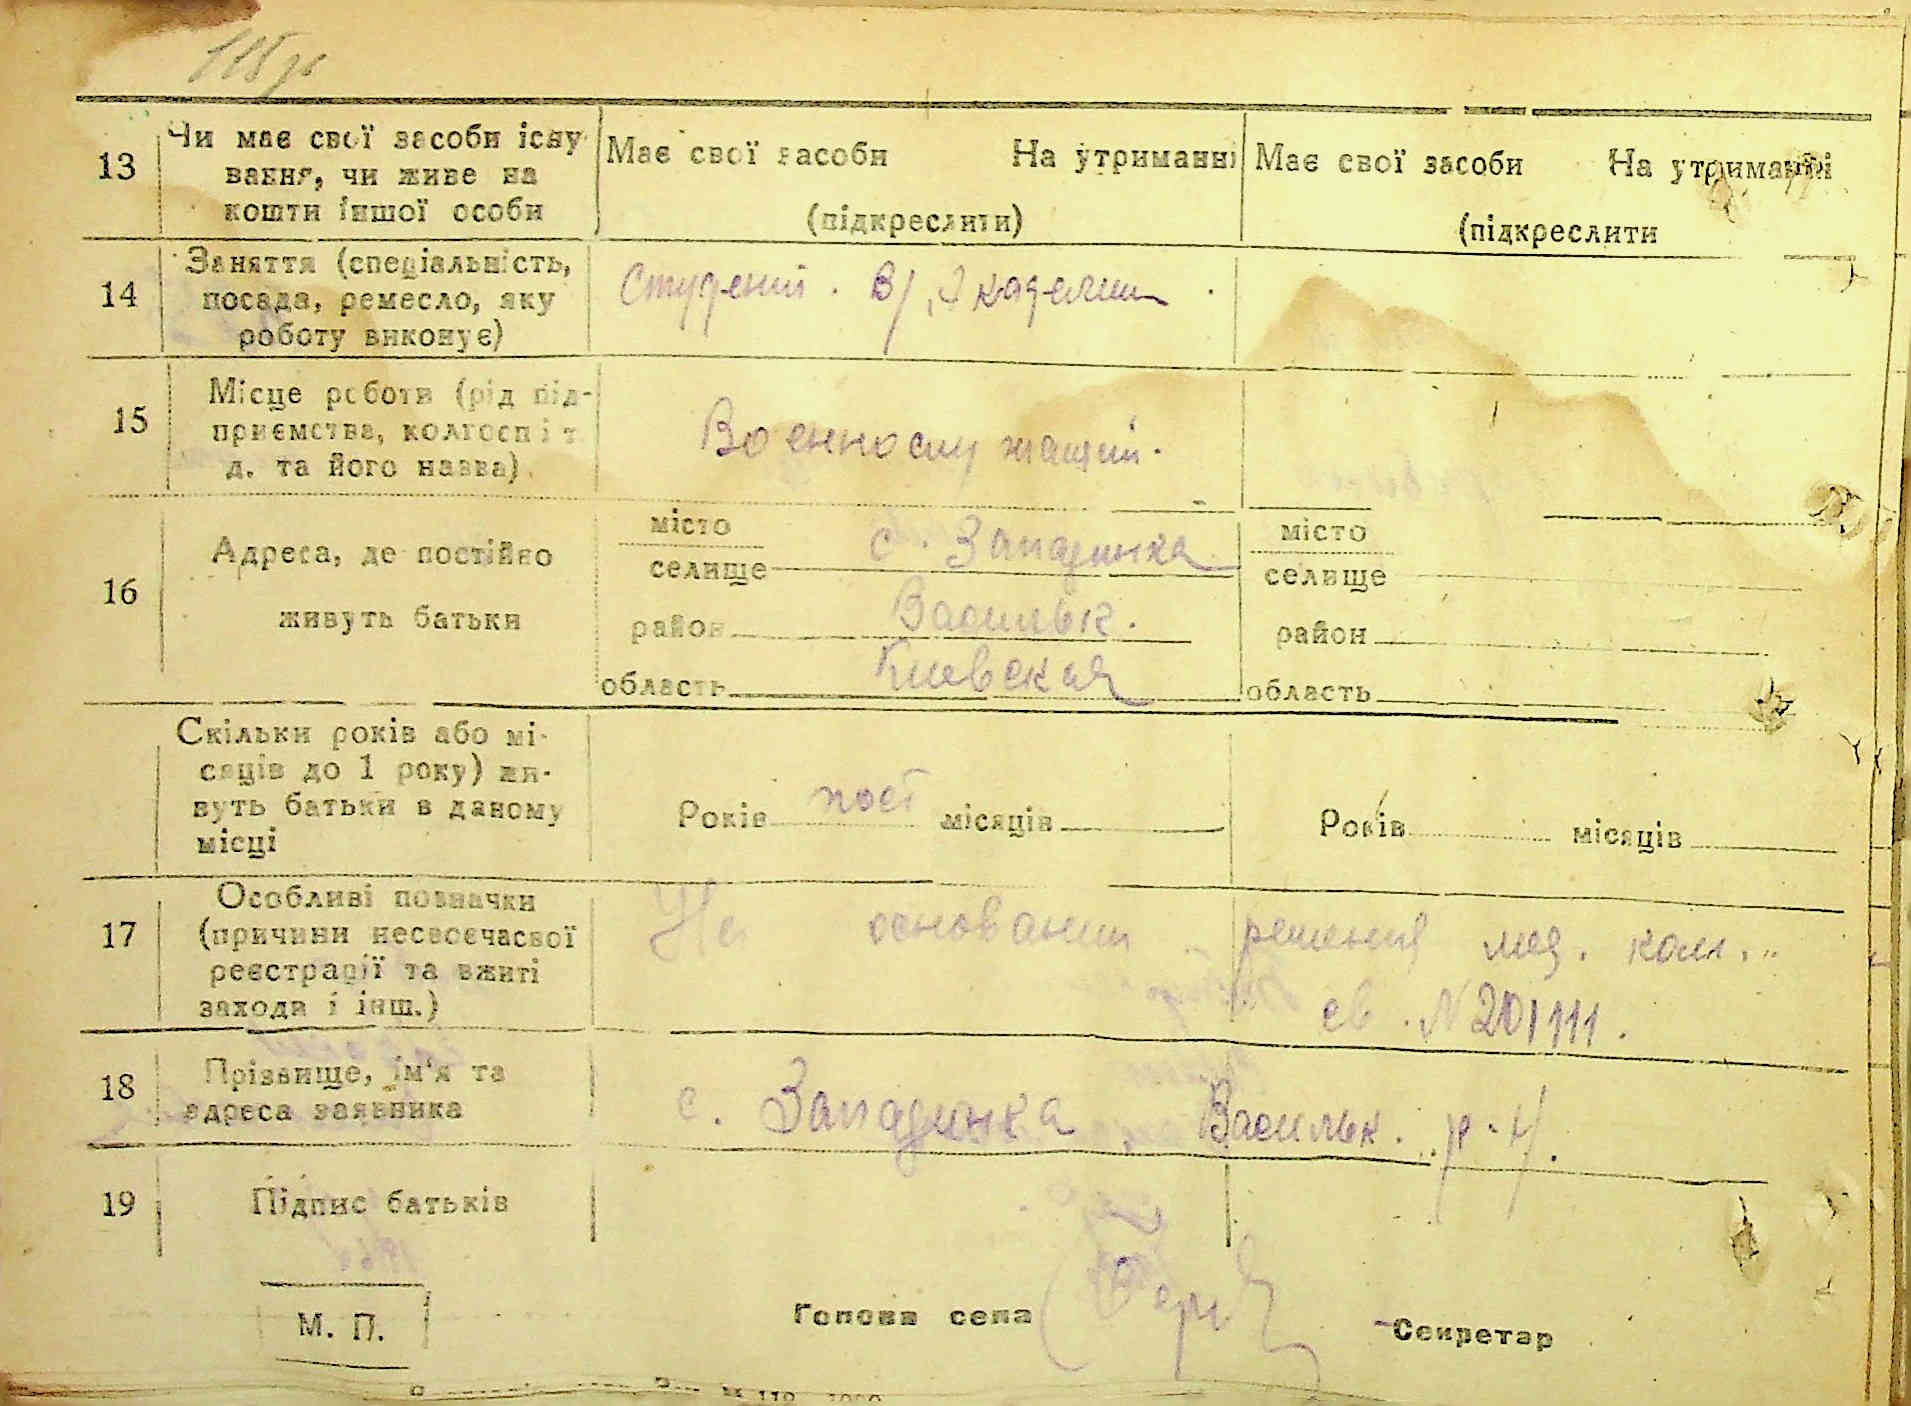 13 Чи має свої засоби існу- Має свої засоби На утриманні Має свої засоби На утриманні
вання, чи живе на
кошти іншої особи (підкреслити) (підкреслити
14 Заняття (спеціальність, Студент. В/Академии.
посада, ремесло, яку
роботу виконує)
15 Місце роботи (рід під-
приємства, колгосп і т. Военнослужащий.
д. та його назва).
16 Адреса, де постійно живуть батьки
місто с. Западинка місто
селище селище
район Васильк. район
область Киевская область
Скільки років або мі-
сяців до 1 року) жи-
вуть батьки в даному Років пост місяців Років місяців
місці
17 Особливі позначки На основании решения мед. ком.
(причини несвоєчасної
реєстрації та вжиті св. N 201111.
заходи і інш.)
18 Прізвище, ім'я та с. Западинка, Васильк. р-н.
адреса заявника
19 Підпис батьків
М. П. Голова села Секретар